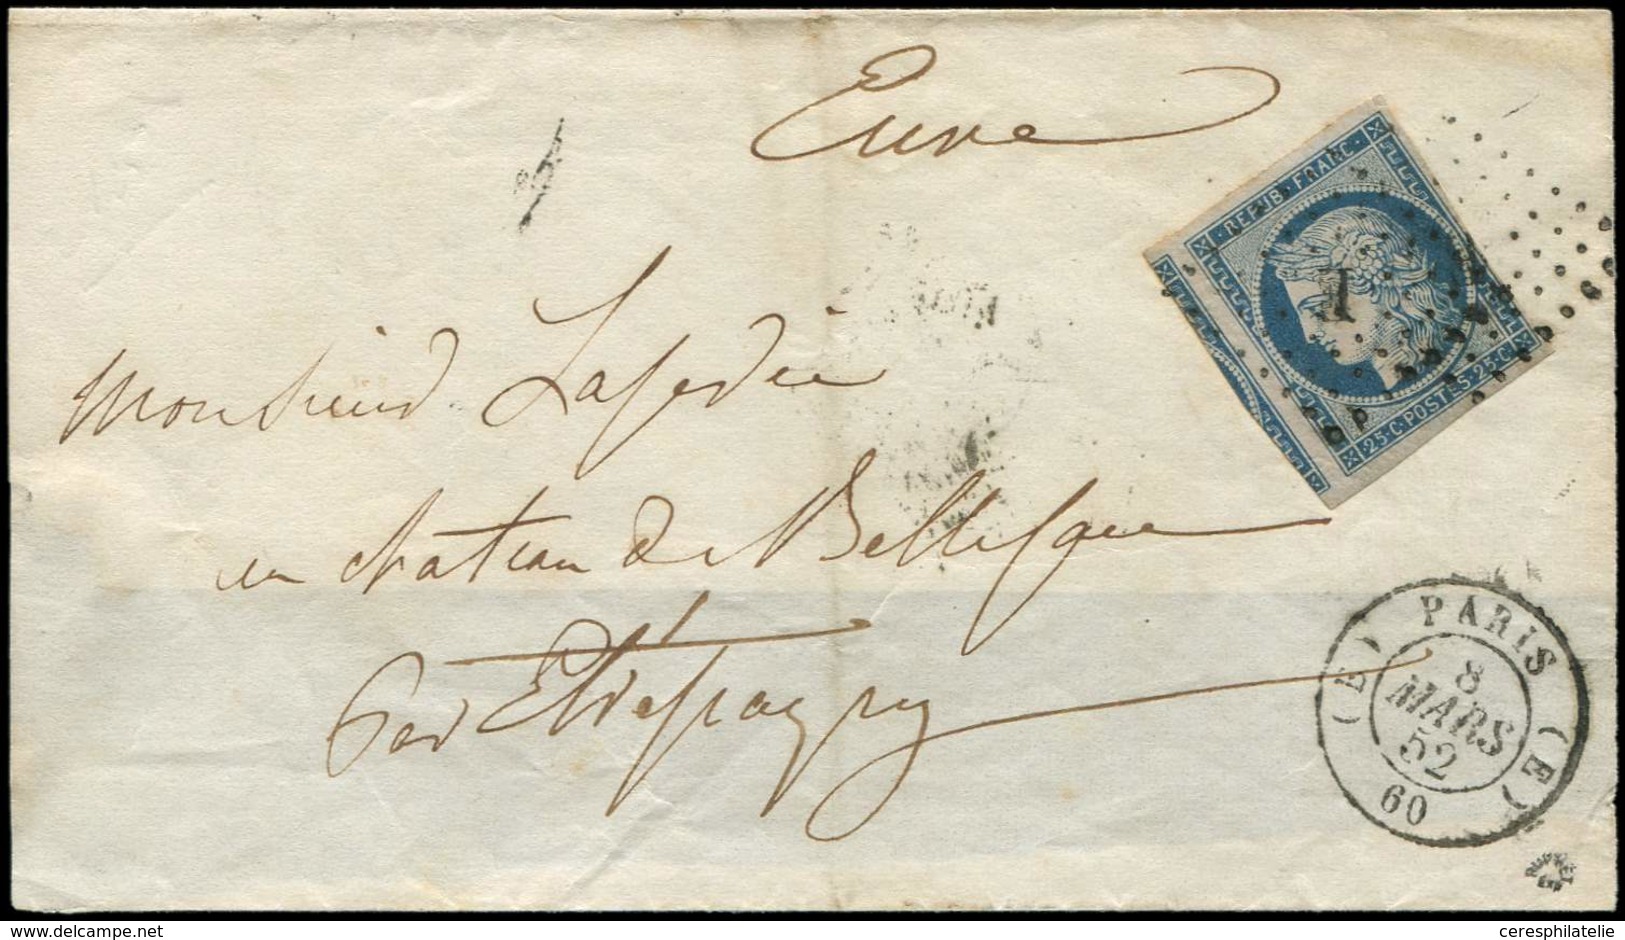 Eure
REPUB. FRANC.
I
25.C. POSTES. 25.C.
Monsieur
au château de Bellisque
par Etrépagny
(E) PARIS (E)
8
MARS
52
60
delcampe.net
ceresphilatelie